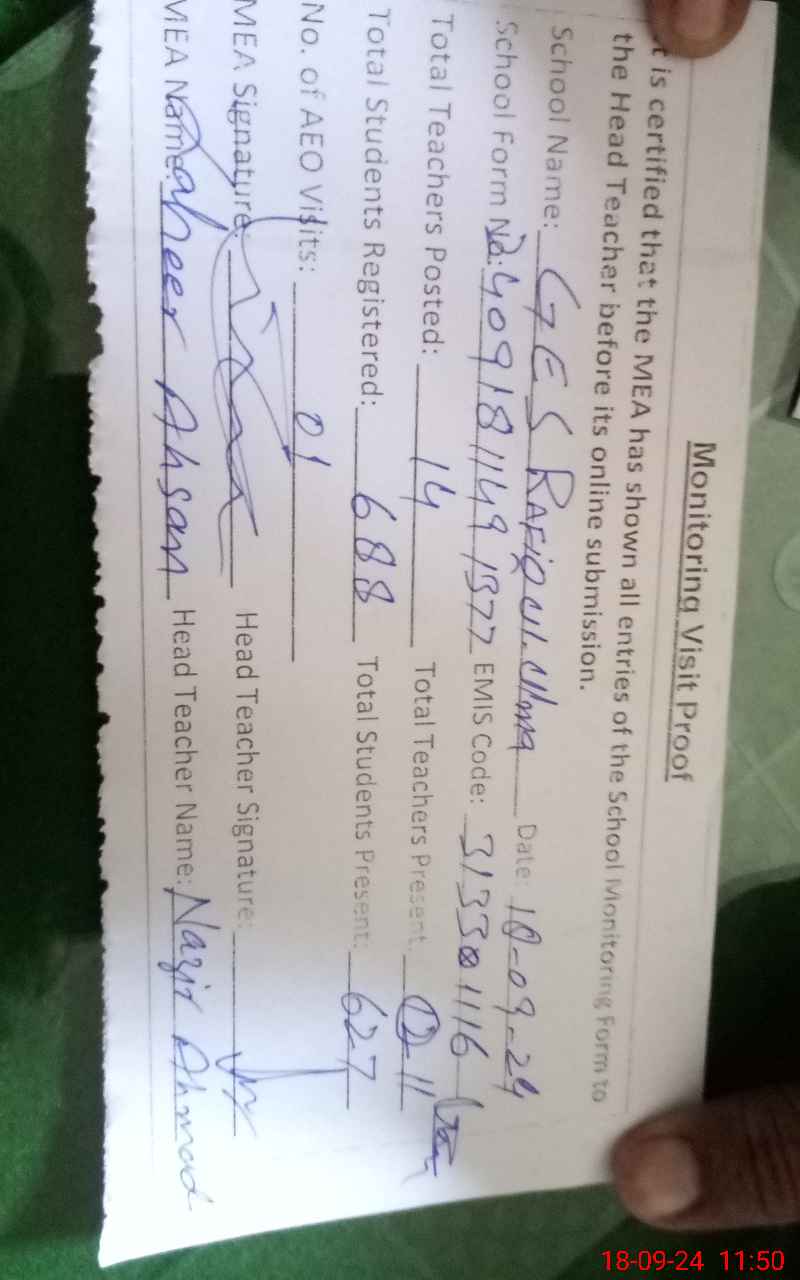 Monitoring Visit Proof
It is certified that the MEA has shown all entries of the School Monitoring Form to
the Head Teacher before its online submission.
School Name: GES RAFIQ UL.Ulma Date: 18-09-24
School Form No: 4091811491377 EMIS Code: 313301116
Total Teachers Posted: 14 Total Teachers Present: 11
Total Students Registered: 688 Total Students Present: 627
No. of AEO Visits: 01
MEA Signature: Head Teacher Signature:
MEA Name: Zaheer Ahsan Head Teacher Name: Nazir Ahmad
18-09-24 11:50